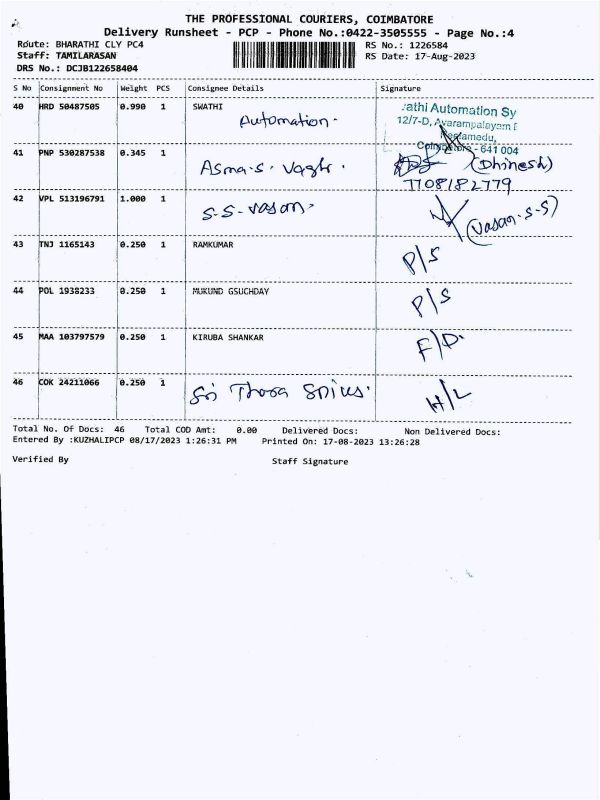 THE PROFESSIONAL COURIERS, COIMBATORE
Delivery Runsheet - PCP - Phone No.:0422-3505555 - Page No.:4
Route: BHARATHI CLY PC4 RS No.: 1226584
Staff: TAMILARASAN RS Date: 17-Aug-2023
DRS No.: DCJB122658404
S No Consignment No Weight PCS Consignee Details Signature
40 HRD 50487505 0.990 1 SWATHI
Automation.
rathi Automation Sy
12/7-D, Avarampalayam
Coimbatore - 641 004
41 PNP 530287538 0.345 1 Asma.S. (Dhinesh)
7708182779
42 VPL 513196791 1.000 1 S-S-Vasan. (Vasan.S-S)
43 TNJ 1165143 0.250 1 RAMKUMAR P/S
44 POL 1938233 0.250 1 MUKUND GSUCHDAY P/S
45 MAA 103797579 0.250 1 KIRUBA SHANKAR F/D.
46 COK 24211066 0.250 1 Sri H/L
Total No. Of Docs: 46 Total COD Amt: 0.00 Delivered Docs: Non Delivered Docs:
Entered By :KUZHALIPCP 08/17/2023 1:26:31 PM Printed On: 17-08-2023 13:26:28
Verified By Staff Signature